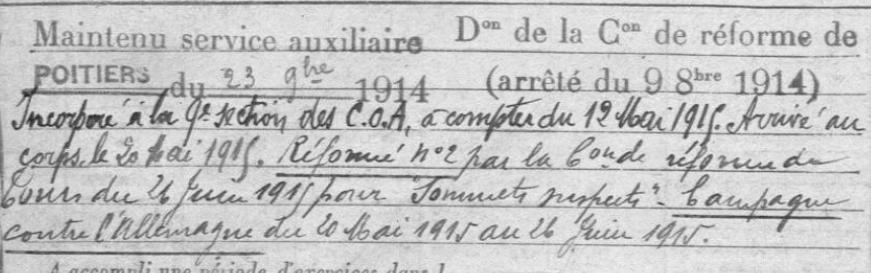 Maintenu service auxiliaire Dᵒⁿ de la Cᵒⁿ de réforme de
POITIERS du 23 9bre 1914 (arrêté du 9 8bre 1914)
Incorporé à la 9e section des C.O.A, à compter du 12 Mai 1915. Arrivé au
corps, le 20 Mai 1915. Réformé n°2 par la Con de réforme de
Tours du 26 Juin 1915 pour "Sommets suspects" - Campagne
contre l'Allemagne du 20 Mai 1915 au 26 Juin 1915.
A accompli une période d'exercices dans l